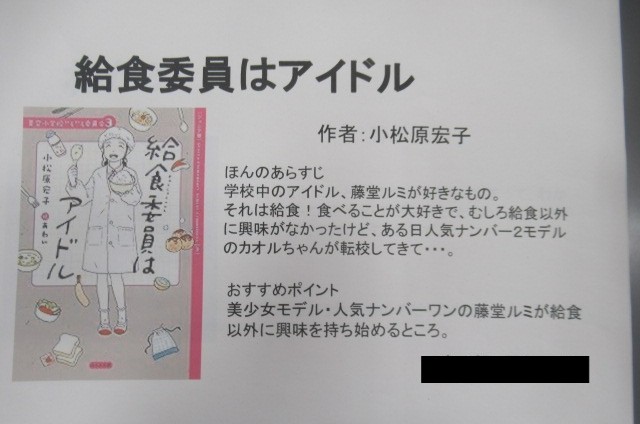 給食委員はアイドル
作者：小松原宏子
3
給食委員は
アイドル
小松原宏子
ほんのあらすじ
学校中のアイドル、藤堂ルミが好きなもの。
それは給食！食べることが大好きで、むしろ給食以外
に興味がなかったけど、ある日人気ナンバー2モデル
のカオルちゃんが転校してきて・・・。
おすすめポイント
美少女モデル・人気ナンバーワンの藤堂ルミが給食
以外に興味を持ち始めるところ。